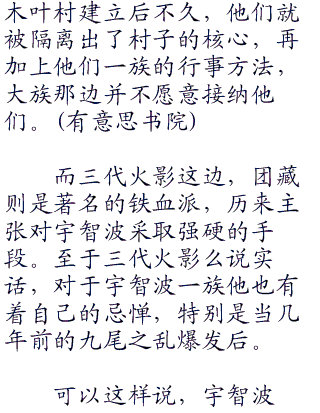 木叶村建立后不久，他们就
被隔离出了村子的核心，再
加上他们一族的行事方法，
大族那边并不愿意接纳他
们。(有意思书院)
而三代火影这边，团藏
则是著名的铁血派，历来主
张对宇智波采取强硬的手
段。至于三代火影么说实
话，对于宇智波一族他也有
着自己的忌惮，特别是当几
年前的九尾之乱爆发后。
可以这样说，宇智波